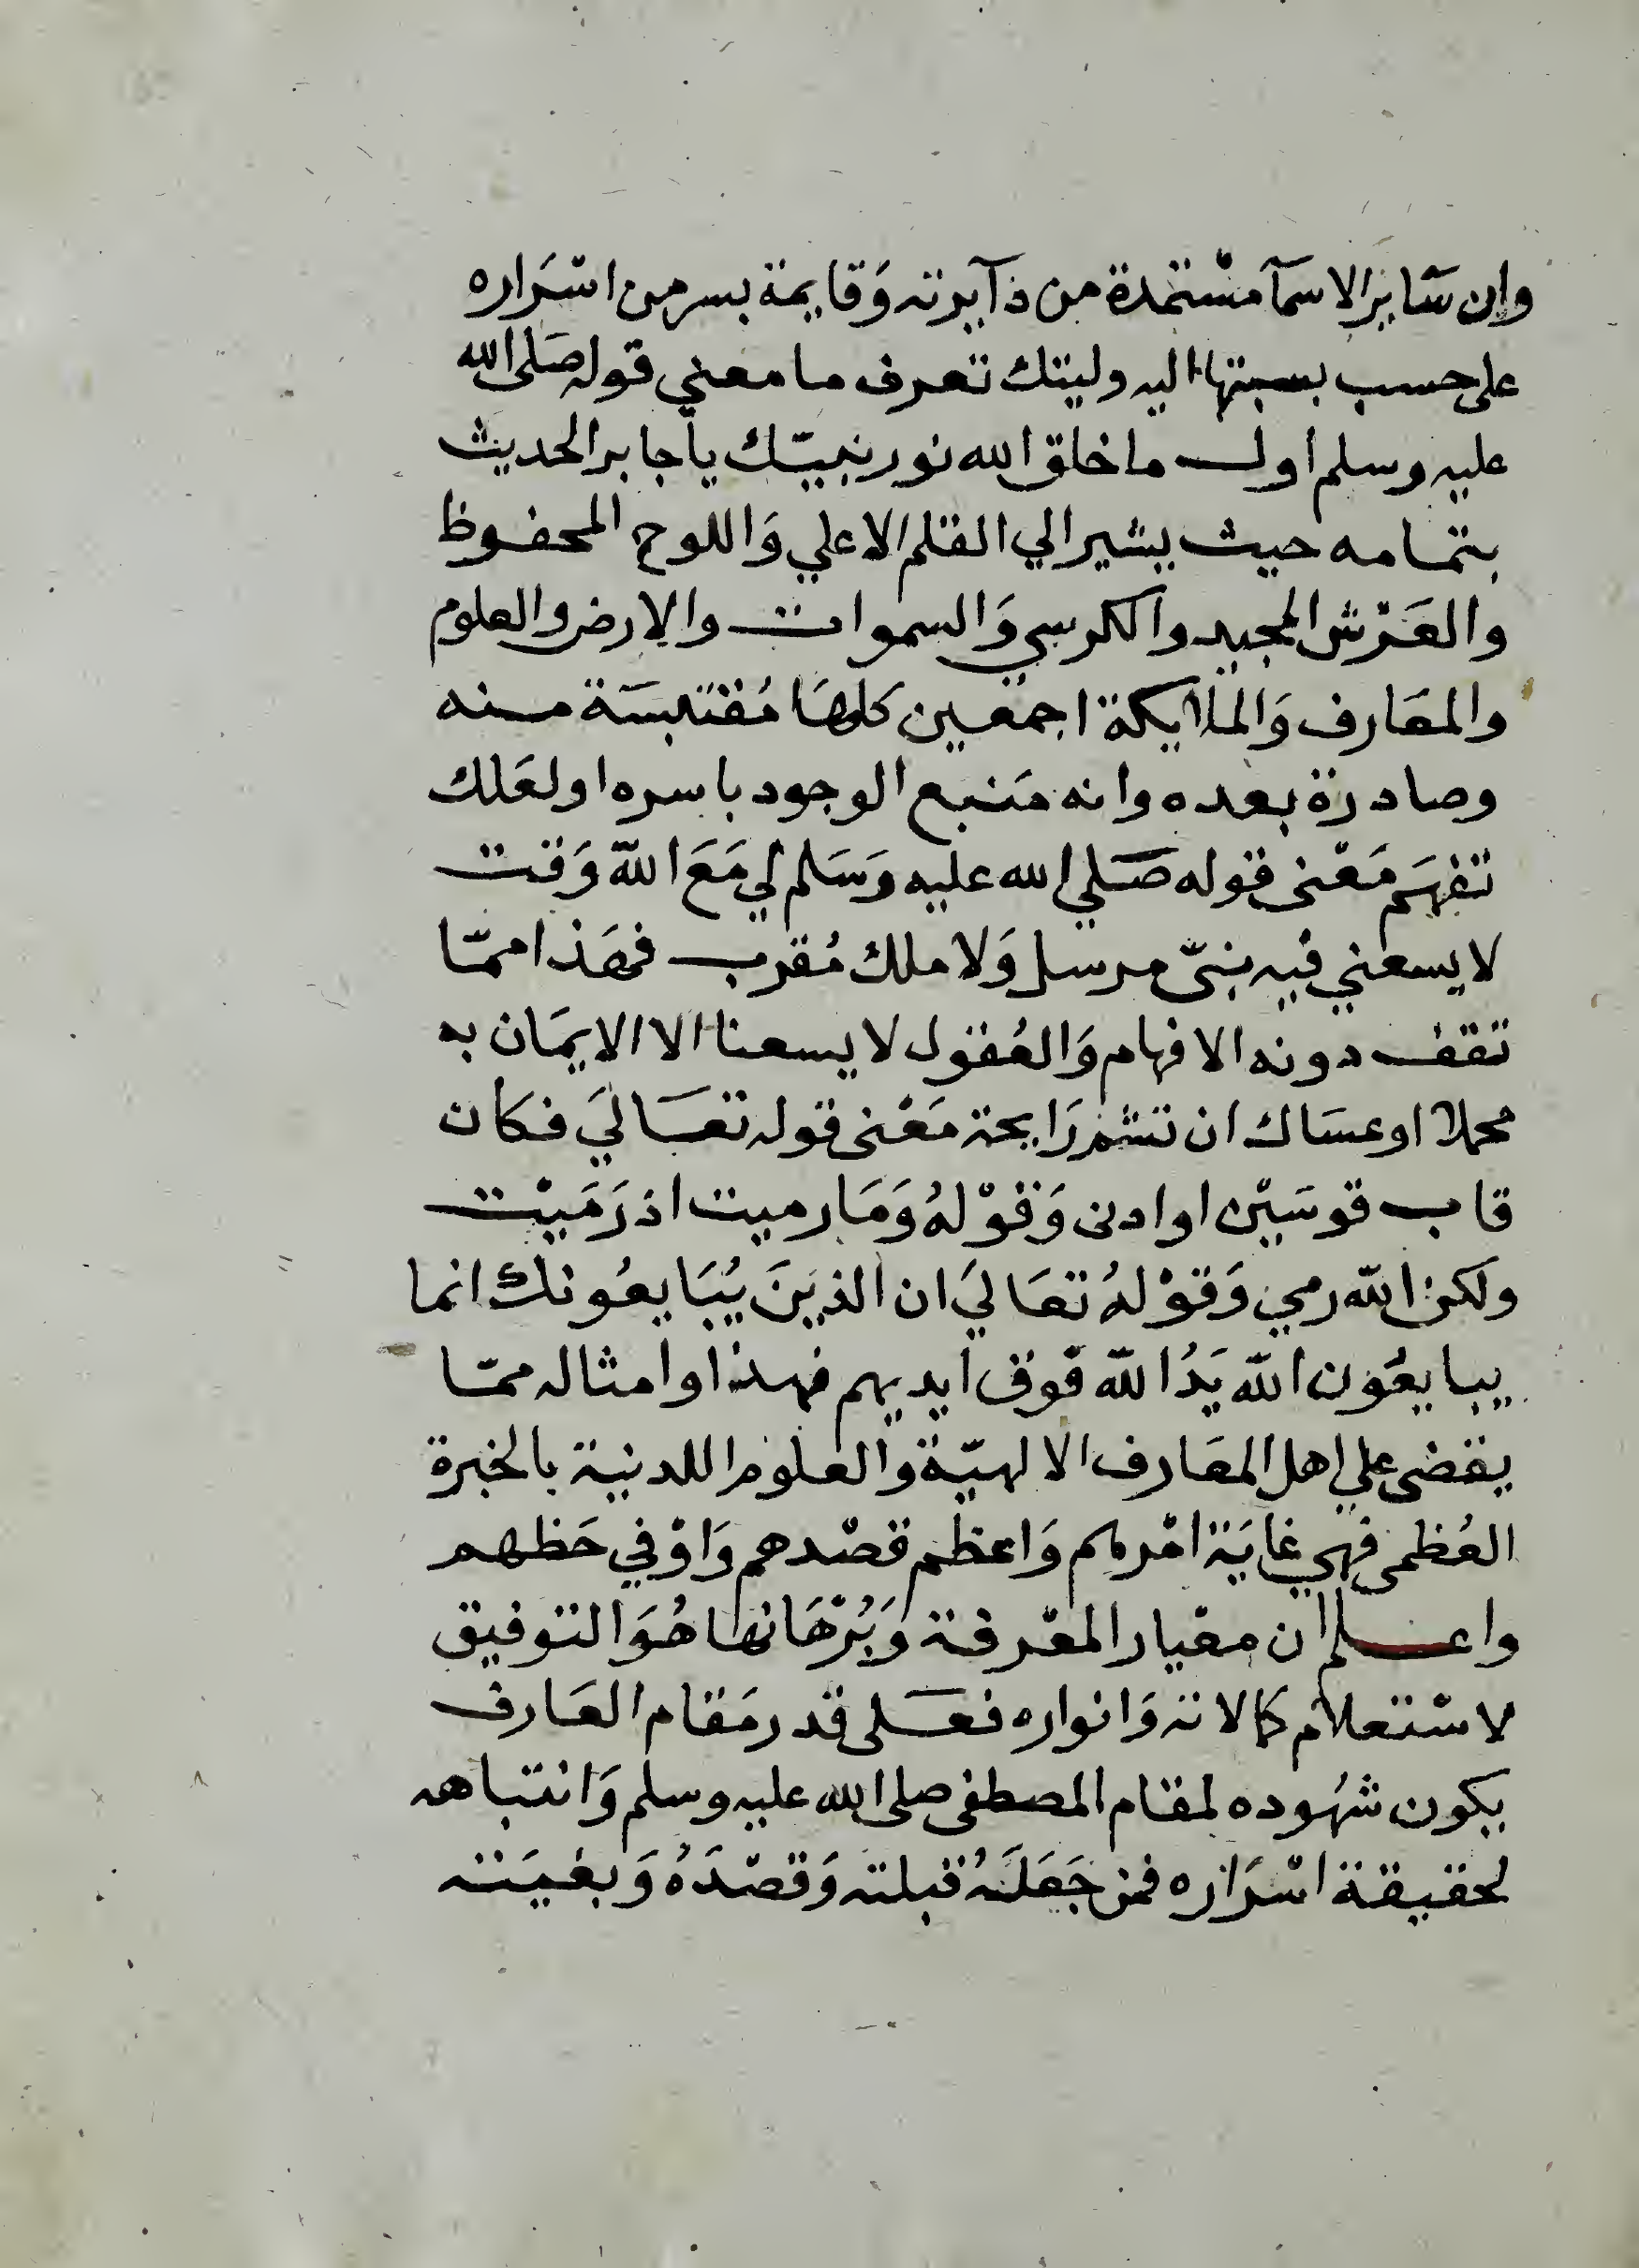 وان سَّاير الاسمآ مسْتمدة من ذآيرته وَقايمة بسر من اسْرَاره
على حسب بسبتها اليه وليتك تعرف ما معني قوله صَلى الله
عليه وسلم اول ما خلق الله نور نبيّك يا جابر الحديث
بتمامه حيث يشير الي القلم الاعلي وَاللوح المحفوظ
والعَرْش المجيد والكرسي وَالسموات والارض والعلوم
والمعَارف وَالملايكة اجمعين كلهَا مُقتبسَة منه
وصادرة بعده وانه مَنبع الوجود باسره او لعَلك
تفهَم مَعْنى قوله صَلي الله عليه وَسَلم لي مَعَ الله وَقت
لا يسعني فيه بنىّ مرسل وَلا ملك مُقرب فهَذا ممّا
تقف دونه الافهام وَالعُقول لا يسعنا الا الايمَان به
محملا او عسَاك ان تشم رَايحة مَعْنى قوله تعَالَي فكان
قاب قوسَيْن او ادنى وَقوْلهُ وَمَا رميت اذ رَمَيْت
ولكن الله رمي وَقوْلهُ تعَاليَ ان الذينَ يُبَايعُونك انما
يبايعُون الله يَدُ الله فَوق ايديهم فهذا وامثاله ممّا
يقضى علي اهل المعَارف الالهيّة والعلوم اللدنية بالخبرة
العُظمى فهي غايَة امْرهم وَاعظم قصْدهم وَاوْفي حَظهم
واعلم ان معْيار المعْرفة وَبُرْهَانها هُوَ التوفيق
لاسْتعلام كمالاته وَانواره فعَلى قدر مَقام العَارف
يكون شهُوده لمقام المصطفى صلى الله عليه وسلم وَانتباهه
لحقيقة اسْرَاره فمن جَعَلَهُ قبلته وَقصْدَهُ وَبغيَته